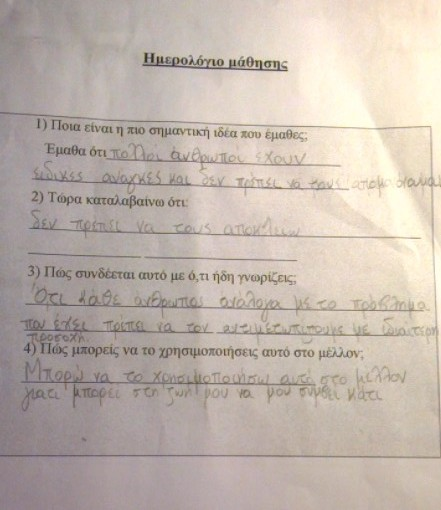 Ημερολόγιο μάθησης
1) Ποια είναι η πιο σημαντική ιδέα που έμαθες;
Έμαθα ότι πολλοί άνθρωποι έχουν
ειδικες αναγκες και δεν πρέπει να τους απομο
2) Τώρα καταλαβαίνω ότι:
δεν πρέπει να τους
3) Πώς συνδέεται αυτό με ό,τι ήδη γνωρίζεις;
Ότι κάθε άνθρωπος ανάλογα με το πρόβλημα
που έχει πρέπει να τον αντιμετωπίζουμε με ιδιαίτερη
προσοχή.
4) Πώς μπορείς να το χρησιμοποιήσεις αυτό στο μέλλον;
Μπορώ να το χρησιμοποιήσω αυτό στο μέλλον
γιατι μπορεί στη ζωή μου να μου συμβεί κάτι